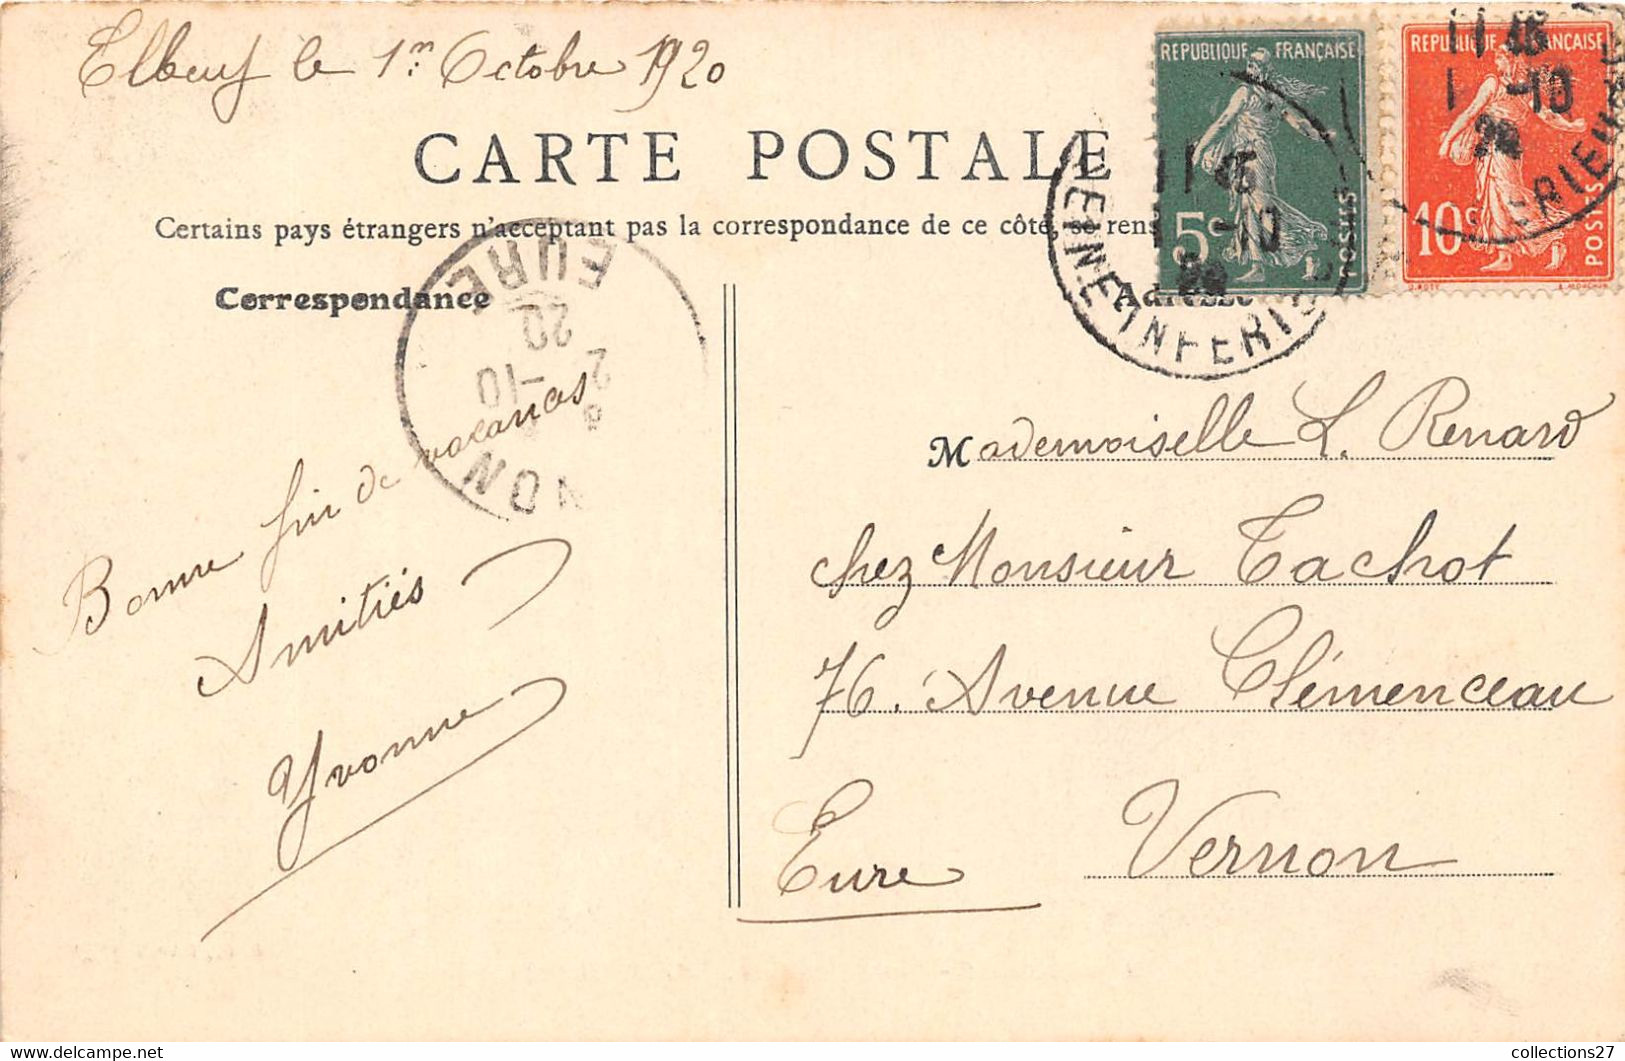 Elbeuf le 1er Octobre 1920
REPUBLIQUE FRANÇAISE
5c
POSTES
REPUBLIQUE FRANÇAISE
10c
POSTES
11 45
1 -10
20
SEINE INFERIEURE
11 45
1 -10
20
ERIEURE
CARTE POSTALE
Certains pays étrangers n'acceptant pas la correspondance de ce côté, se rens
Correspondance
Adresse
EURE
20
2 -10
NON
Bonne fin de vacances
Amitiés
Yvonne
Mademoiselle L. Renard
chez Monsieur Tachot
76. Avenue Clémenceau
Vernon
Eure
collections27